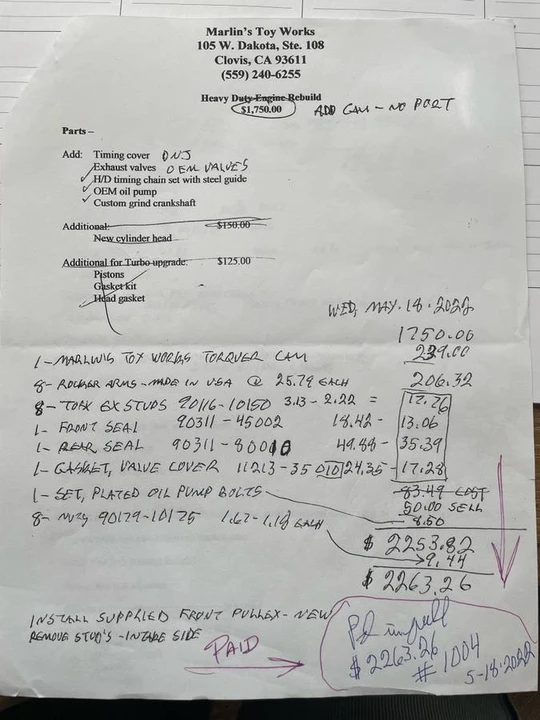 Marlin's Toy Works
105 W. Dakota, Ste. 108
Clovis, CA 93611
(559) 240-6255
Heavy Duty Engine Rebuild
$1,750.00 ADD CAM - NO PORT
Parts –
Add: Timing cover DNJ
Exhaust valves OEM VALVES
H/D timing chain set with steel guide
OEM oil pump
Custom grind crankshaft
Additional: $150.00
New cylinder head
Additional for Turbo upgrade: $125.00
Pistons
Gasket kit
Head gasket
WED, MAY. 18. 2022
1750.00
1- MARLIN'S TOY WORKS TORQUER CAM 239.00
8- ROCKER ARMS - MADE IN USA @ 25.79 EACH 206.32
8- TOEX EX STUDS 90116-10150 3.13 - 2.22 = 17.76
1- FRONT SEAL 90311-45002 18.42 - 13.06
1- REAR SEAL 90311-80010 49.88 - 35.39
1- GASKET, VALVE COVER 11213-35010 24.35 - 17.28
83.49 COST
1- SET, PLATED OIL PUMP BOLTS 50.00 SELL
8.50
8- NUTS 90179-10125 1.67-1.18 EACH
$ 2253.82
9.44
$ 2263.26
INSTALL SUPPLIED FRONT PULLEY - NEW
REMOVE STUD'S - INTAKE SIDE
PAID
Pd in full
$ 2263.26
# 1004
5-18-2022